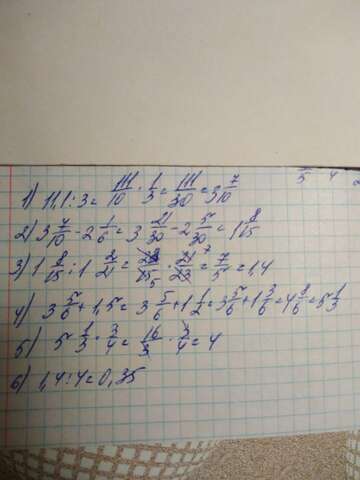 1) 11,1 : 3 = 111/10 · 1/3 = 111/30 = 3 7/10
2) 3 7/10 - 2 1/6 = 3 21/30 - 2 5/30 = 1 8/15
3) 1 8/15 : 1 2/21 = 23/15 · 21/23 = 7/5 = 1,4
4) 3 5/6 + 1,5 = 3 5/6 + 1 1/2 = 3 5/6 + 1 3/6 = 4 8/6 = 5 1/3
5) 5 1/3 · 3/4 = 16/3 · 3/4 = 4
6) 1,4 : 4 = 0,35